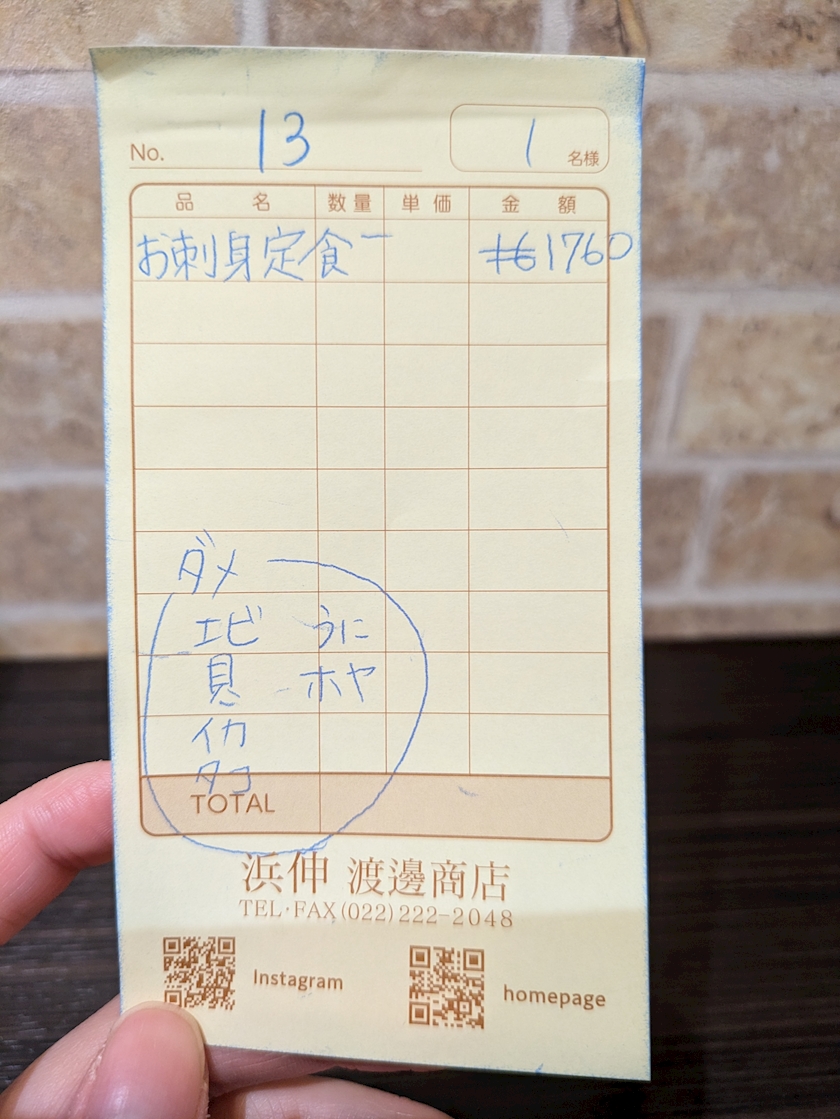 No. 13 1 名様
品名 数量 単価 金額
お刺身定食 一 1760
ダメ
エビ うに
貝 ホヤ
イカ
タコ
TOTAL
浜伸 渡邊商店
TEL・FAX(022)222-2048
Instagram homepage